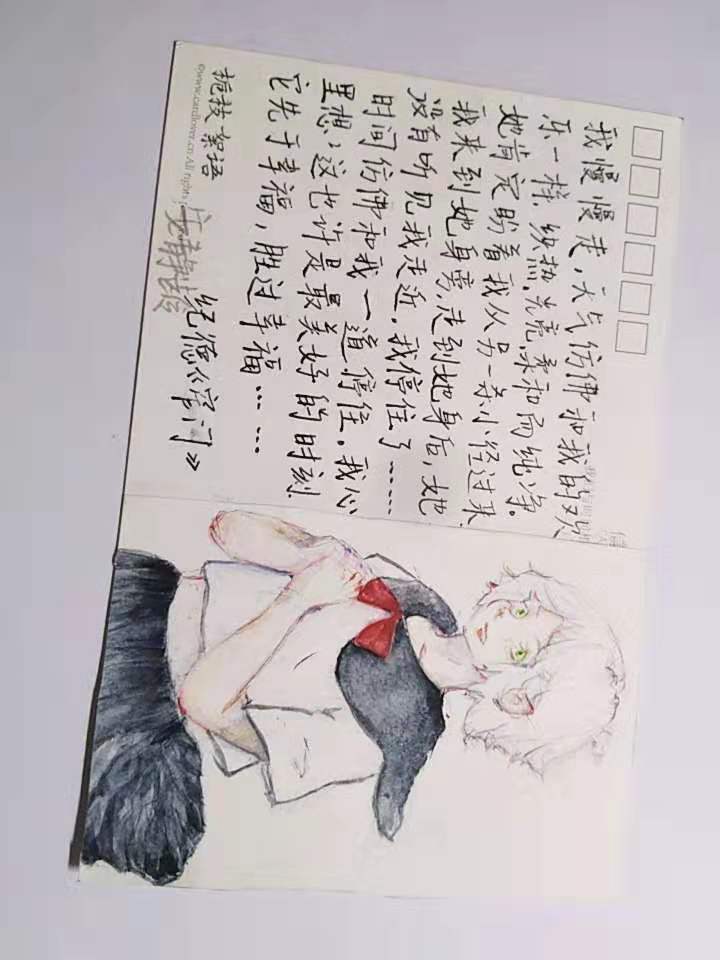 我慢慢走，天气仿佛和我的欢
乐一样，炽热，光亮柔和而纯净。
她肯定盼着我从另一条小径过来
我来到她身旁，走到她身后，她
没有听见我走近。我停住了……
时间仿佛和我一道停住。我心
里想：这也许是最美好的时刻
它先于幸福，胜过幸福……
纪德《窄门》
扼技 絮语
©www.cardlover.cn All rights